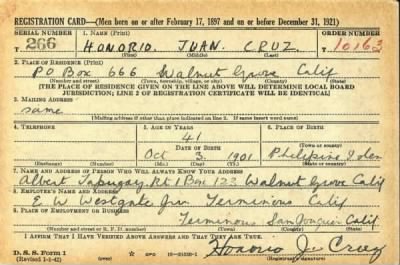 REGISTRATION CARD—(Men born on or after February 17, 1897 and on or before December 31, 1921)
SERIAL NUMBER 1. NAME (Print) ORDER NUMBER
T 266 HONORIO JUAN CRUZ T 10163
(First) (Middle) (Last)
2. PLACE OF RESIDENCE (Print)
PO Box 666 Walnut Grove Calif
(Number and street) (Town, township, village, or city) (County) (State)
[THE PLACE OF RESIDENCE GIVEN ON THE LINE ABOVE WILL DETERMINE LOCAL BOARD
JURISDICTION; LINE 2 OF REGISTRATION CERTIFICATE WILL BE IDENTICAL]
3. MAILING ADDRESS
same
[Mailing address if other than place indicated on line 2. If same insert word same]
4. TELEPHONE 5. AGE IN YEARS 6. PLACE OF BIRTH
41
DATE OF BIRTH
Oct 3 1901 Philipine
(Exchange) (Number) (Mo.) (Day) (Yr.) (State or country)
7. NAME AND ADDRESS OF PERSON WHO WILL ALWAYS KNOW YOUR ADDRESS
Albert Rt 1 Box 123 Walnut Grove Calif
8. EMPLOYER'S NAME AND ADDRESS
E. W. Westgate Terminous Calif
9. PLACE OF EMPLOYMENT OR BUSINESS
Terminous San Joaquin Calif
(Number and street or R. F. D. number) (Town) (County) (State)
I AFFIRM THAT I HAVE VERIFIED ABOVE ANSWERS AND THAT THEY ARE TRUE.
D. S. S. Form 1
(Revised 1-1-42) GPO 16-21630-1 Honorio J. Cruz